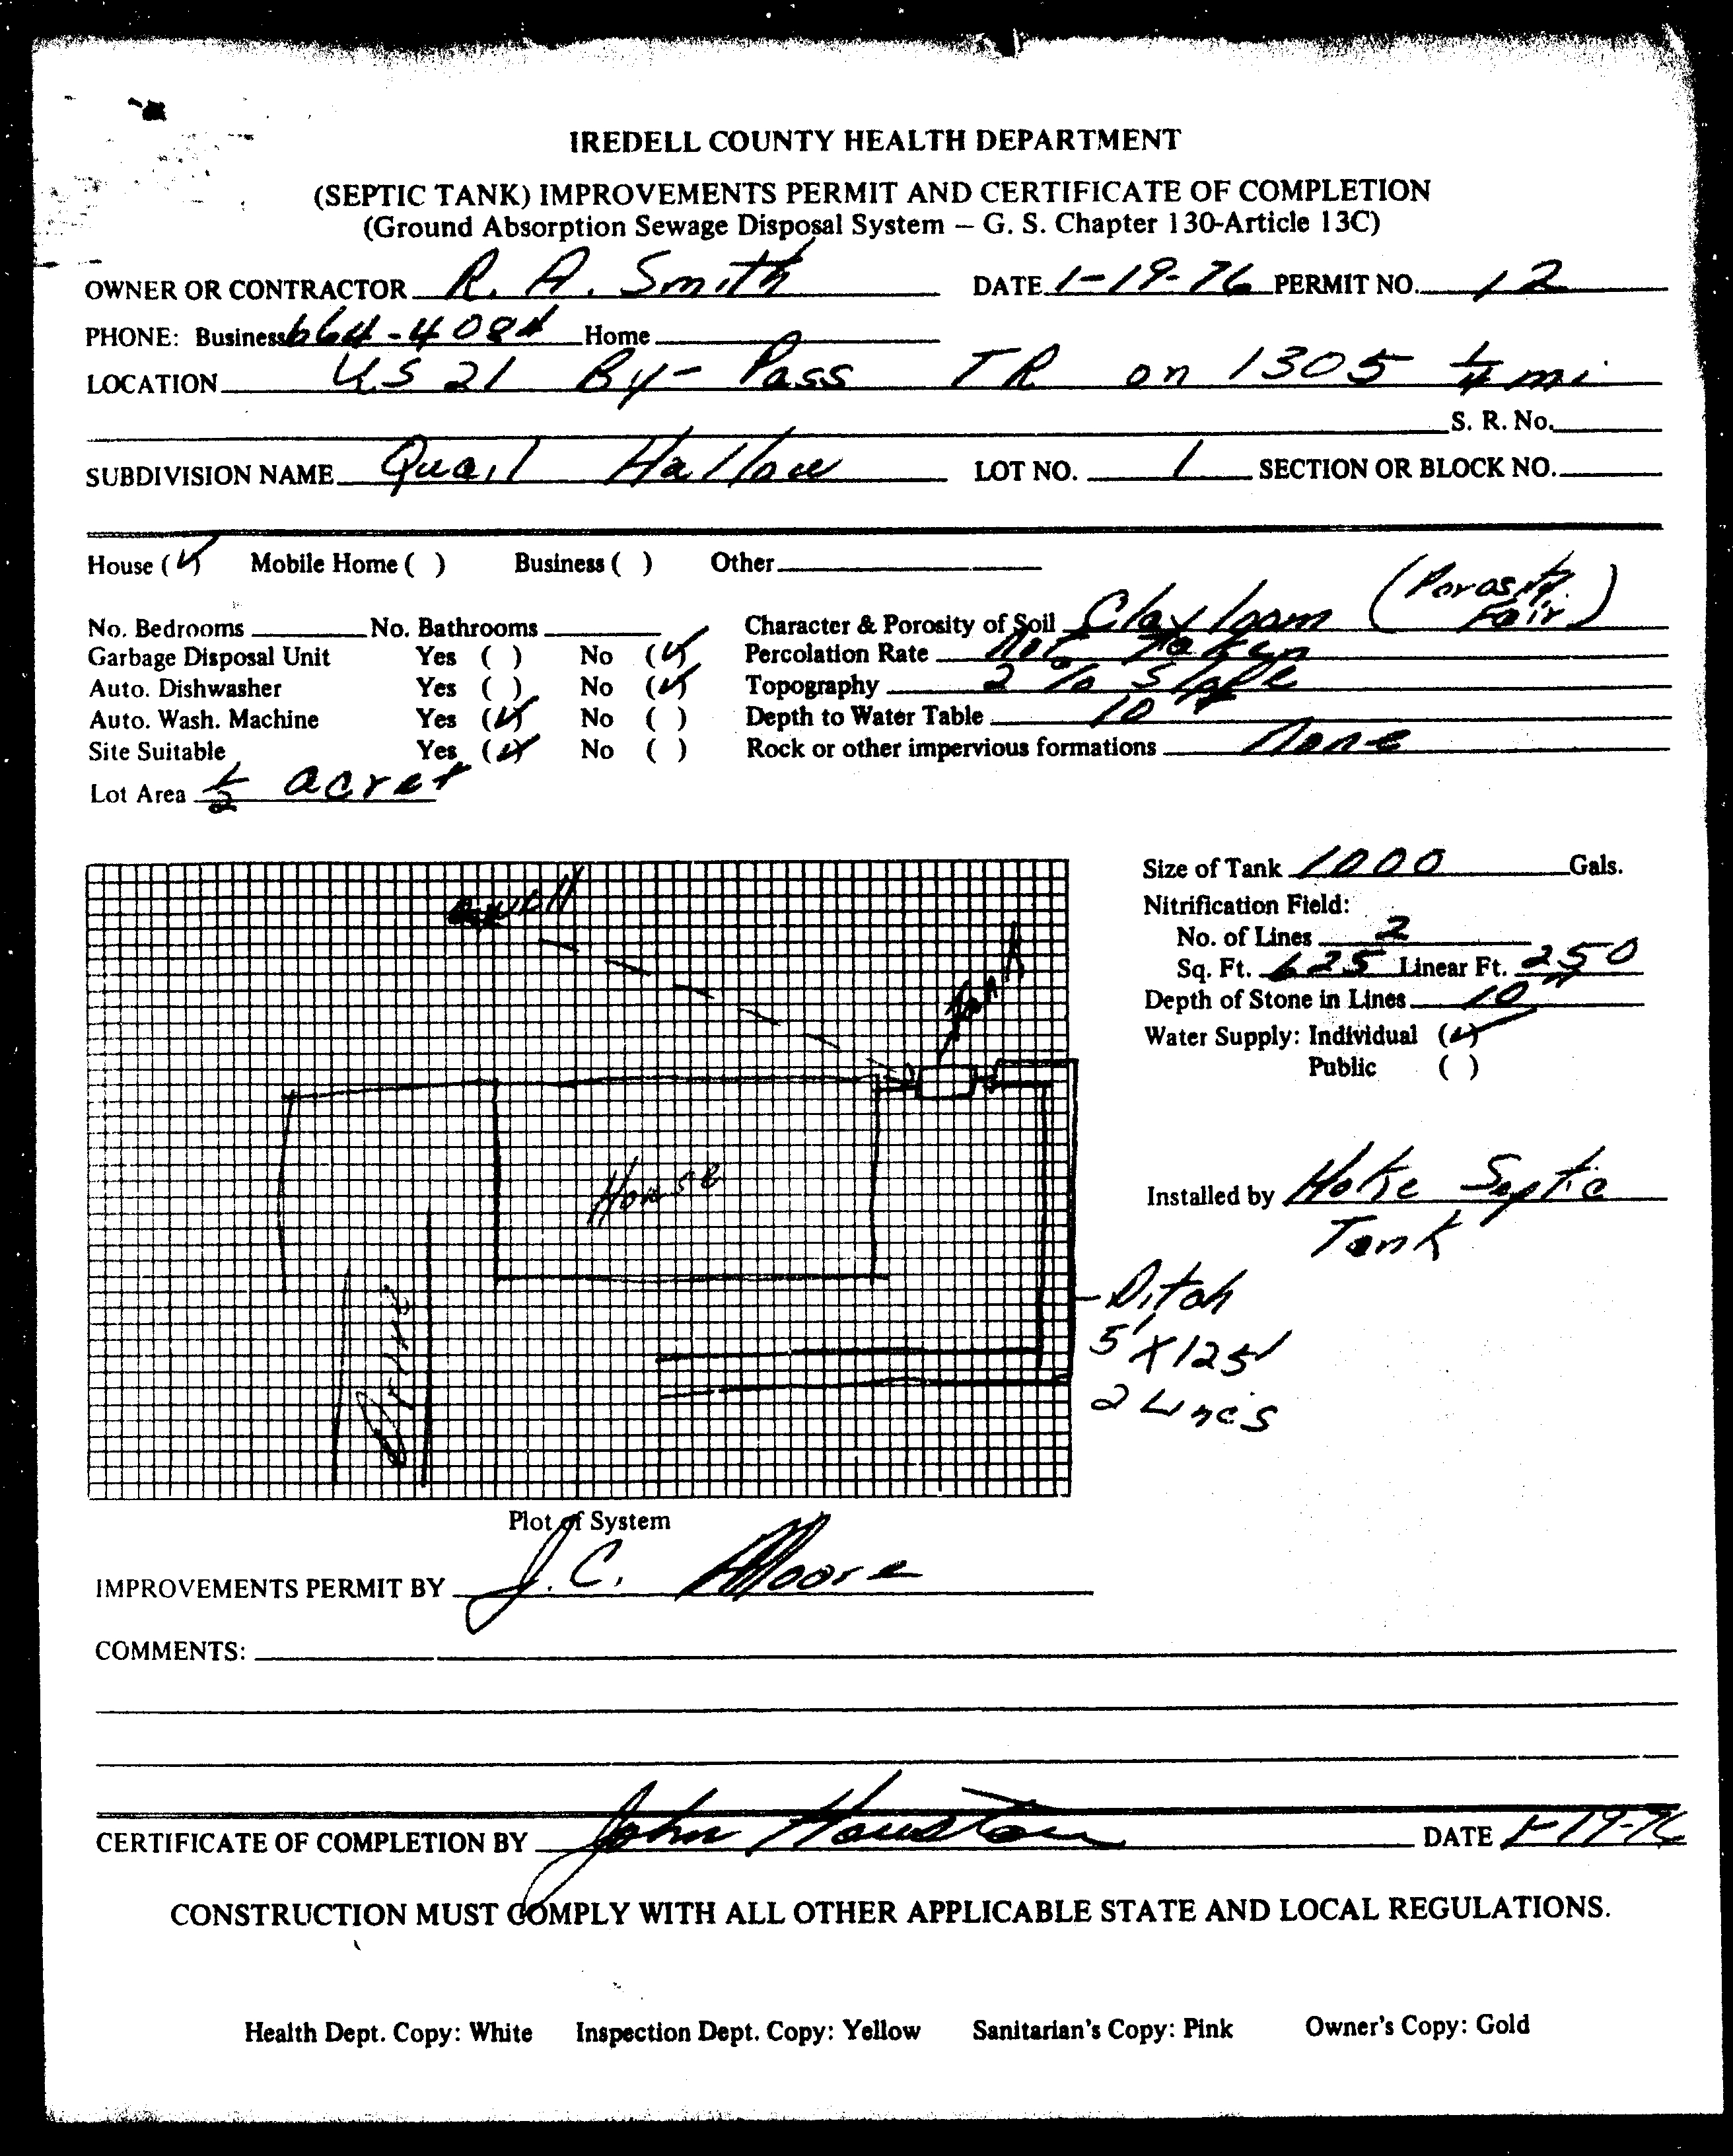 IREDELL COUNTY HEALTH DEPARTMENT
(SEPTIC TANK) IMPROVEMENTS PERMIT AND CERTIFICATE OF COMPLETION
(Ground Absorption Sewage Disposal System – G. S. Chapter 130-Article 13C)
OWNER OR CONTRACTOR R. A. Smith DATE 1-19-76 PERMIT NO. 12
PHONE: Business 664-4084 Home
LOCATION US 21 By-Pass TR on 1305 1/4 mi
S. R. No.
SUBDIVISION NAME Quail Hallow LOT NO. 1 SECTION OR BLOCK NO.
House (✓) Mobile Home ( ) Business ( ) Other
No. Bedrooms No. Bathrooms Character & Porosity of Soil Clay loam (Porosity Fair)
Garbage Disposal Unit Yes ( ) No (✓) Percolation Rate Not Taken
Auto. Dishwasher Yes ( ) No (✓) Topography 2 % Slope
Auto. Wash. Machine Yes (✓) No ( ) Depth to Water Table 10'
Site Suitable Yes (✓) No ( ) Rock or other impervious formations None
Lot Area 1/2 acre
Size of Tank 1000 Gals.
Nitrification Field:
No. of Lines 2
Sq. Ft. 625 Linear Ft. 250
Depth of Stone in Lines 10"
Water Supply: Individual (✓)
Public ( )
well
Tank
House
Drive
Installed by Hoke Septic
Tank
Ditch
5' X 125'
2 Lines
Plot of System
IMPROVEMENTS PERMIT BY J. C. Moore
COMMENTS:
CERTIFICATE OF COMPLETION BY John Houston DATE 1-19-76
CONSTRUCTION MUST COMPLY WITH ALL OTHER APPLICABLE STATE AND LOCAL REGULATIONS.
Health Dept. Copy: White Inspection Dept. Copy: Yellow Sanitarian's Copy: Pink Owner's Copy: Gold